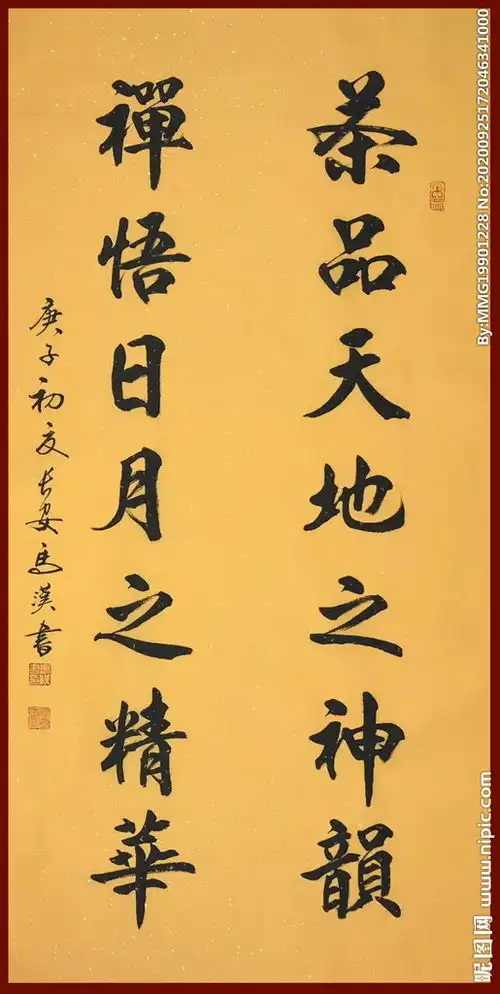 茶品天地之神韻
禪悟日月之精華
庚子初夏长安馬漢書
By:MMG19901228 No:20200925172046341000
昵图网 www.nipic.com